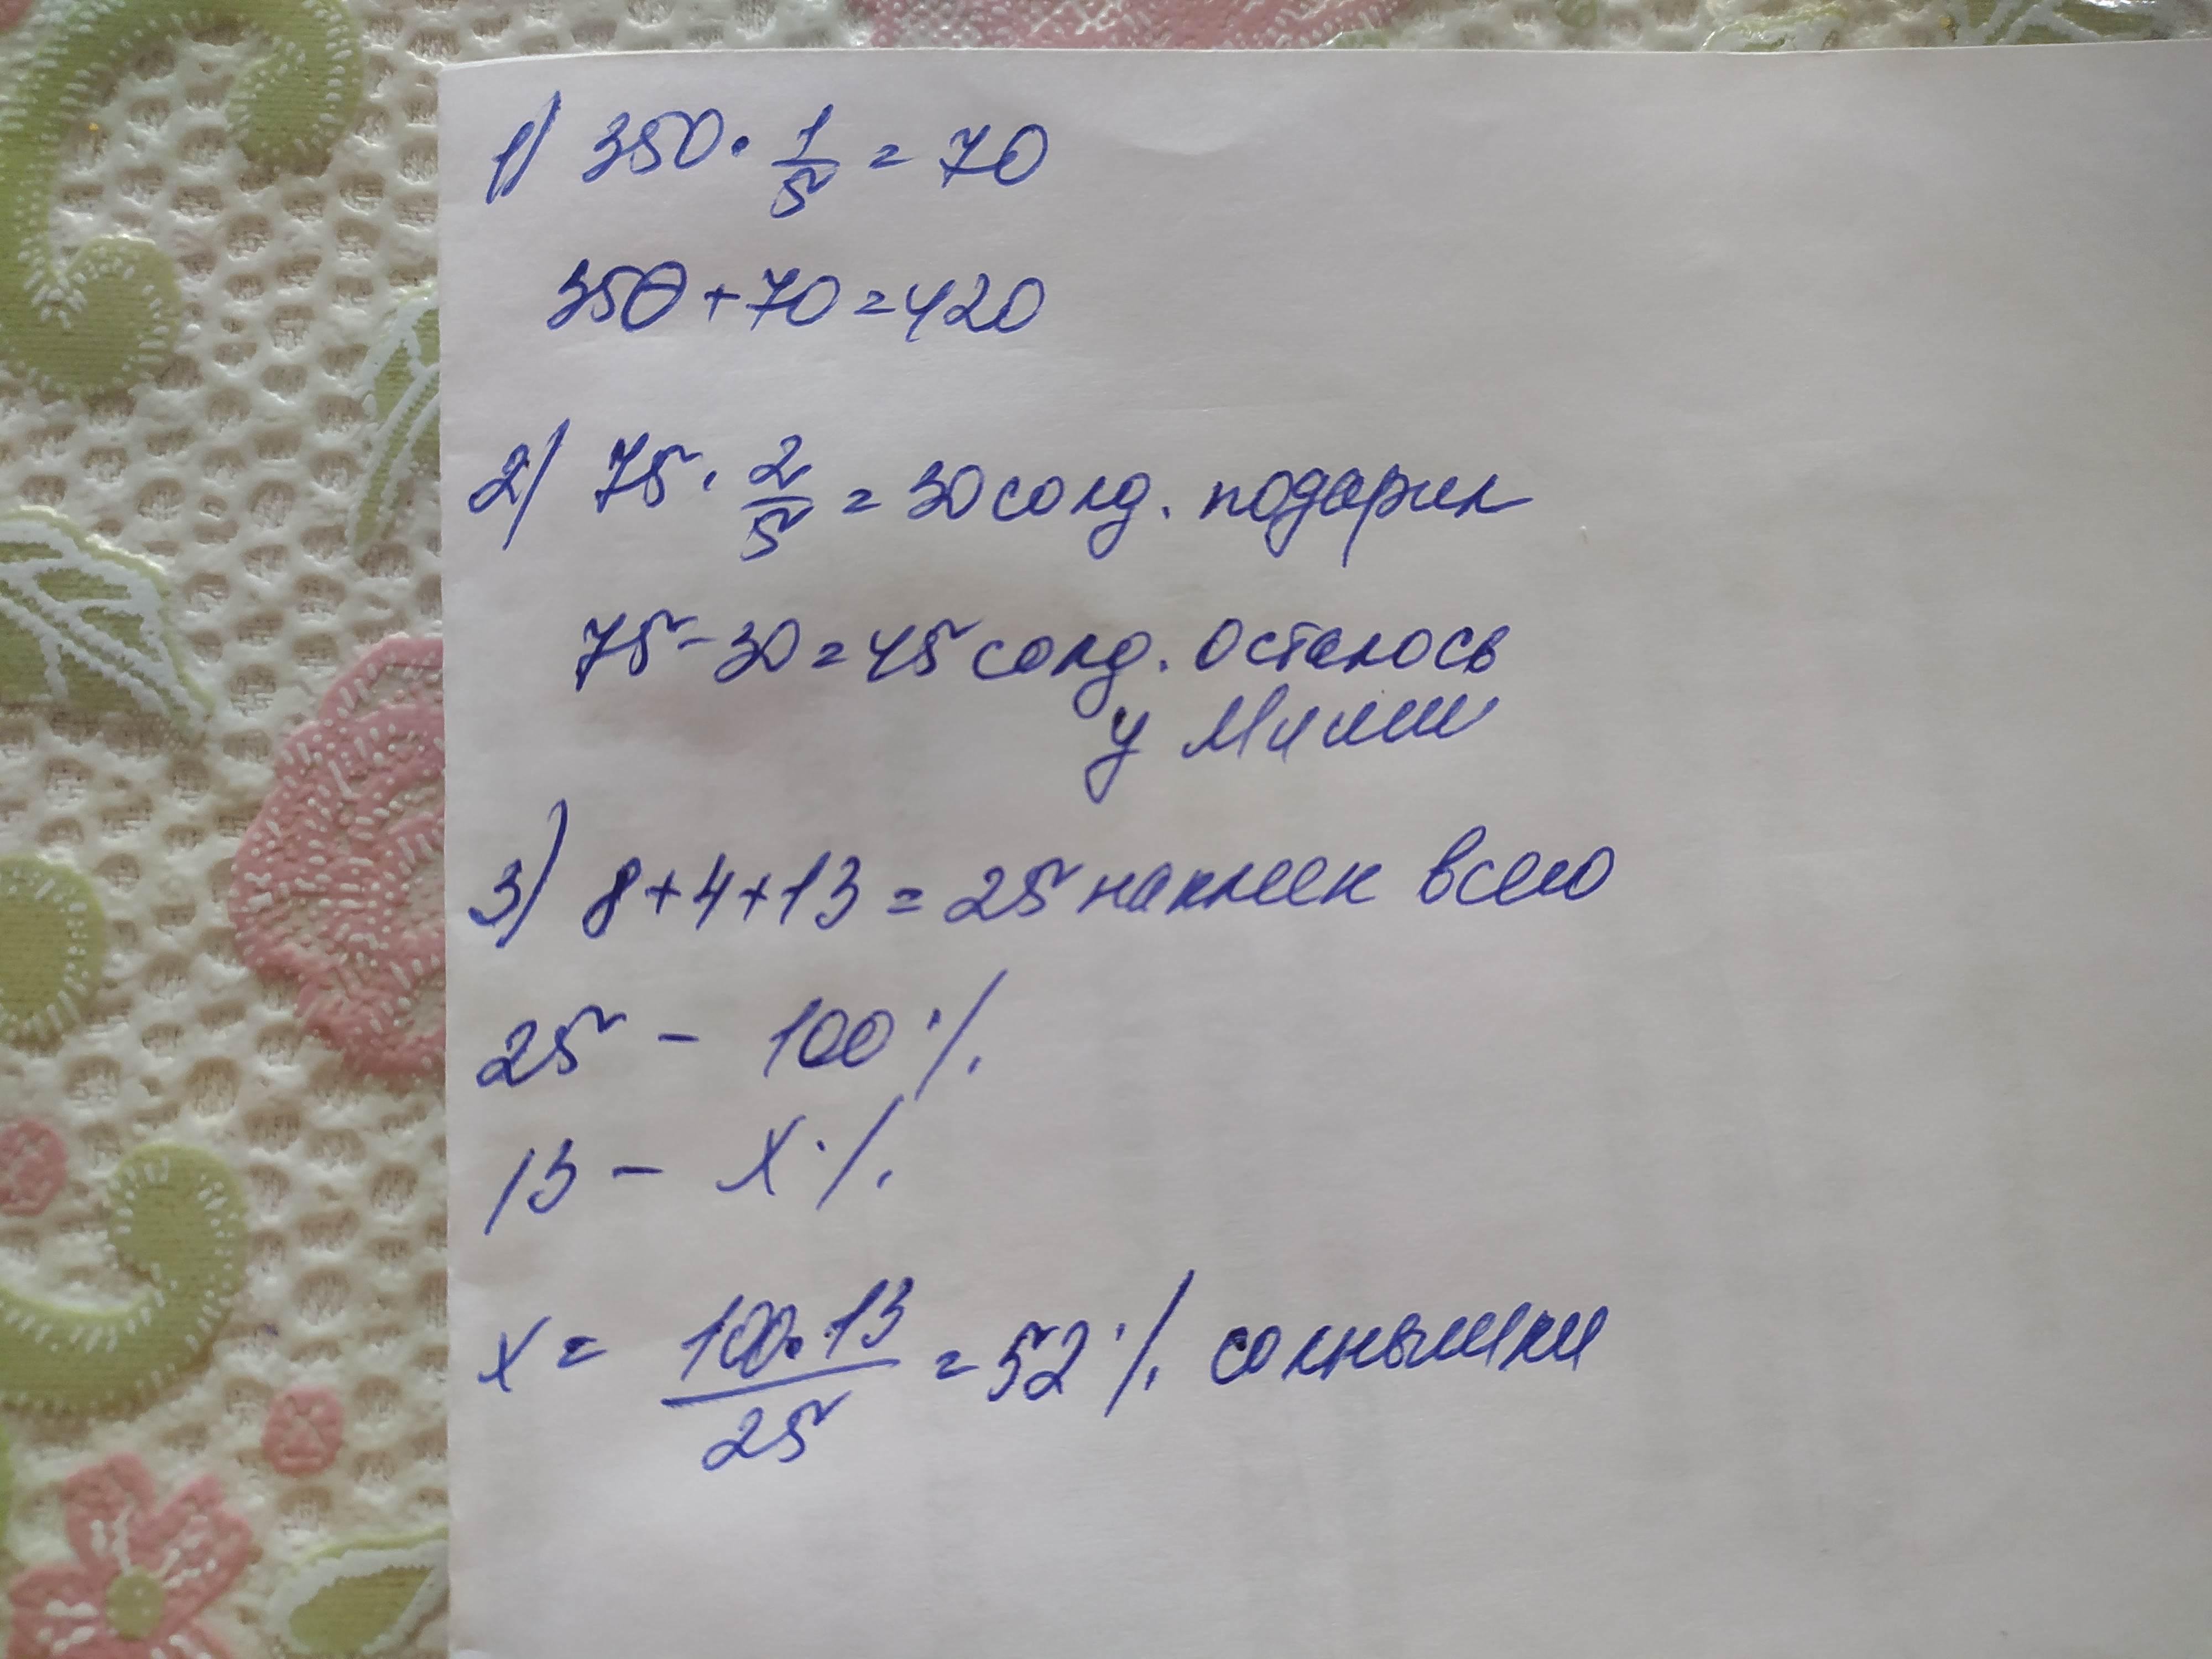 1) 350 · 1/5 = 70
350 + 70 = 420
2) 75 · 2/5 = 30 солд. подарил
75 - 30 = 45 солд. осталось
у Миши
3) 8 + 4 + 13 = 25 наклеек всего
25 - 100 %
13 - x %
x = 100·13/25 = 52 % солнышки